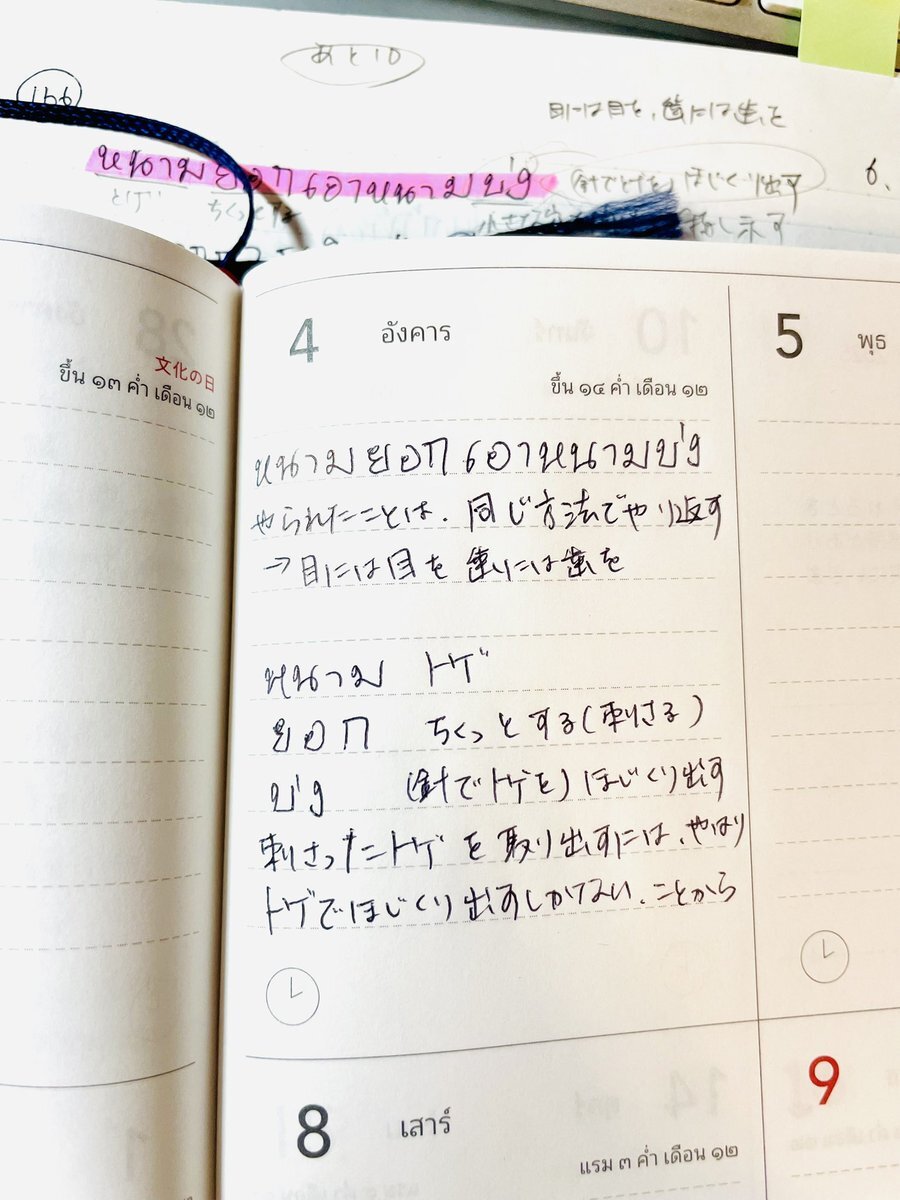 あと10
166
目には目を、歯には歯を
หนามยอกเอาหนามบ่ง
(針でとげを) ほじくり出す
6.
とげ ちくっとする
指し示す
文化の日
ขึ้น ๑๓ ค่ำ เดือน ๑๒
4 อังคาร
ขึ้น ๑๔ ค่ำ เดือน ๑๒
หนามยอกเอาหนามบ่ง
やられたことは、同じ方法でやり返す
→目には目を 歯には歯を
หนาม トゲ
ยอก ちくっとする(刺さる)
บ่ง (針でトゲを) ほじくり出す
刺さったトゲを取り出すには、やはり
トゲでほじくり出すしかない、ことから
5 พุธ
8 เสาร์
แรม ๓ ค่ำ เดือน ๑๒
9